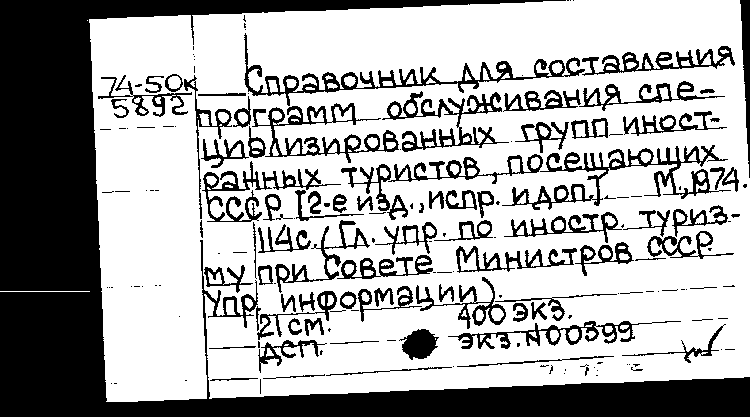 74-50к
5892
Справочник для составления
программ обслуживания спе-
циализированных групп иност-
ранных туристов, посещающих
СССР. [2-е изд., испр. и доп.]. М., 1974.
114с. (Гл. упр. по иностр. туриз-
му при Совете Министров СССР.
Упр. информации).
21 см. 400 экз.
ДСП. экз. N00399